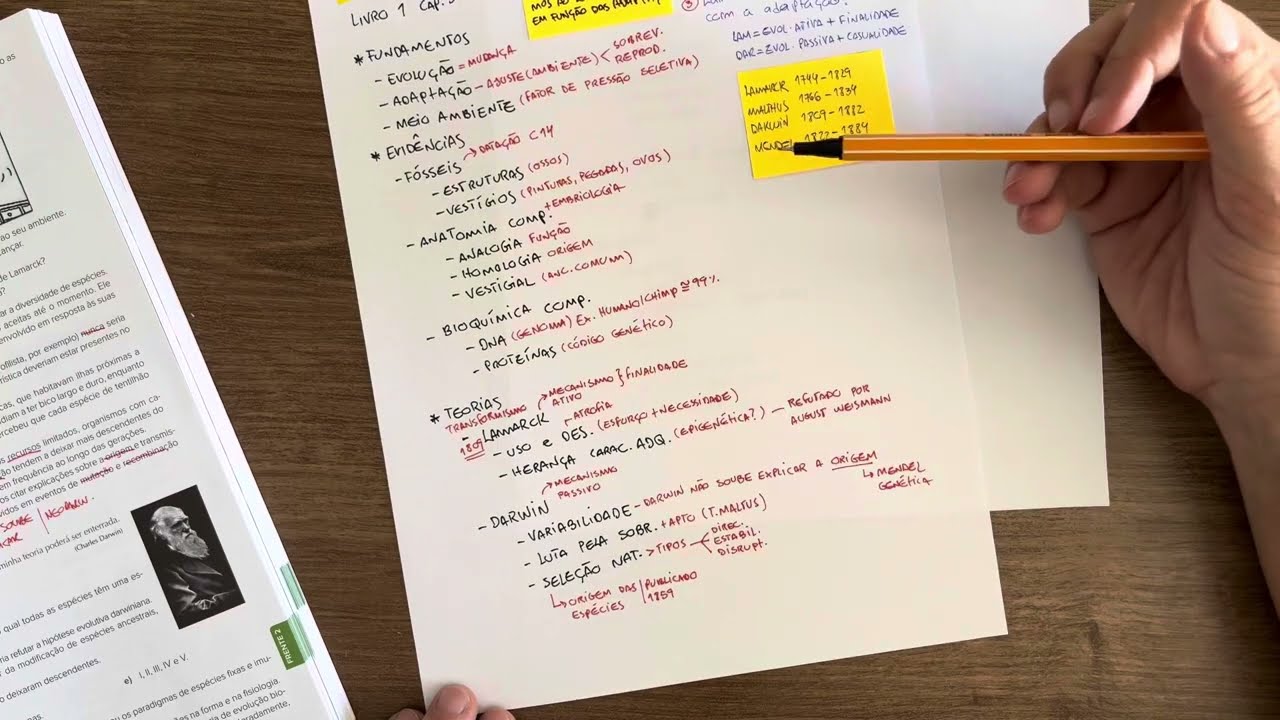 ao seu ambiente.
de Lamarck?
ar a diversidade de espécies.
aceitas até o momento. Ele
envolvido em resposta às suas
nunca seria
deveriam estar presentes no
cas, que habitavam ilhas próximas a
a ter bico largo e duro, enquanto
percebeu que cada espécie de tentilhão
os recursos limitados, organismos com ca-
tendem a deixar mais descendentes do
em frequência ao longo das gerações.
citar explicações sobre a origem e transmis-
em eventos de mutação e recombinação
SOUBE | NEODARW.
minha teoria poderá ser enterrada.
(Charles Darwin)
qual todas as espécies têm uma es-
refutar a hipótese evolutiva darwiniana.
da modificação de espécies ancestrais,
deixaram descendentes.
e) I, II, III, IV e V.
os paradigmas de espécies fixas e imu-
na forma e na fisiologia.
de evolução bio-
FRENTE 2
LIVRO 1 CAP.
EM FUNÇÃO DAS
*FUNDAMENTOS
- EVOLUÇÃO = MUDANÇA
- ADAPTAÇÃO - AJUSTE (AMBIENTE) < SOBREV.
REPROD.
- MEIO AMBIENTE (FATOR DE PRESSÃO SELETIVA)
* EVIDÊNCIAS
- FÓSSEIS → DATAÇÃO C14
- ESTRUTURAS (OSSOS)
- VESTÍGIOS (PINTURAS, PEGADAS, OVOS)
- ANATOMIA COMP. + EMBRIOLOGIA
- ANALOGIA FUNÇÃO
- HOMOLOGIA ORIGEM
- VESTIGIAL (ANC. COMUM)
- BIOQUÍMICA COMP.
- DNA (GENOMA) EX. HUMANO/CHIMP ≅ 99%.
- PROTEÍNAS (CÓDIGO GENÉTICO)
* TEORIAS
TRANSFORMISMO → MECANISMO ATIVO } FINALIDADE
- LAMARCK
1809
ATROFIA
- USO e DES. (ESFORÇO + NECESSIDADE)
- HERANÇA CARAC. ADQ. (EPIGENÉTICA?) — REFUTADO POR
AUGUST WEISMANN
- DARWIN → MECANISMO PASSIVO
- VARIABILIDADE - DARWIN NÃO SOUBE EXPLICAR A ORIGEM
↳ MENDEL
GENÉTICA
- LUTA PELA SOBR. + APTO (T. MALTUS)
- SELEÇÃO NAT. > TIPOS < DIREC.
ESTABIL.
DISRUPT.
↳ ORIGEM DAS ESPÉCIES | PUBLICADO 1859
com a adaptação?
LAM = EVOL. ATIVA + FINALIDADE
DAR = EVOL. PASSIVA + CASUALIDADE
LAMARCK 1744-1829
MALTHUS 1766-1834
DARWIN 1809-1882
MENDEL 1822-1884